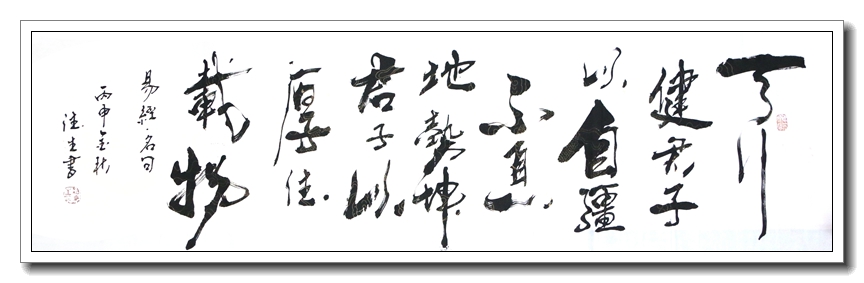 天行
健君子
以自彊
不息
地勢坤
君子以
厚德
載物
易經名句
丙申金秋
德生書